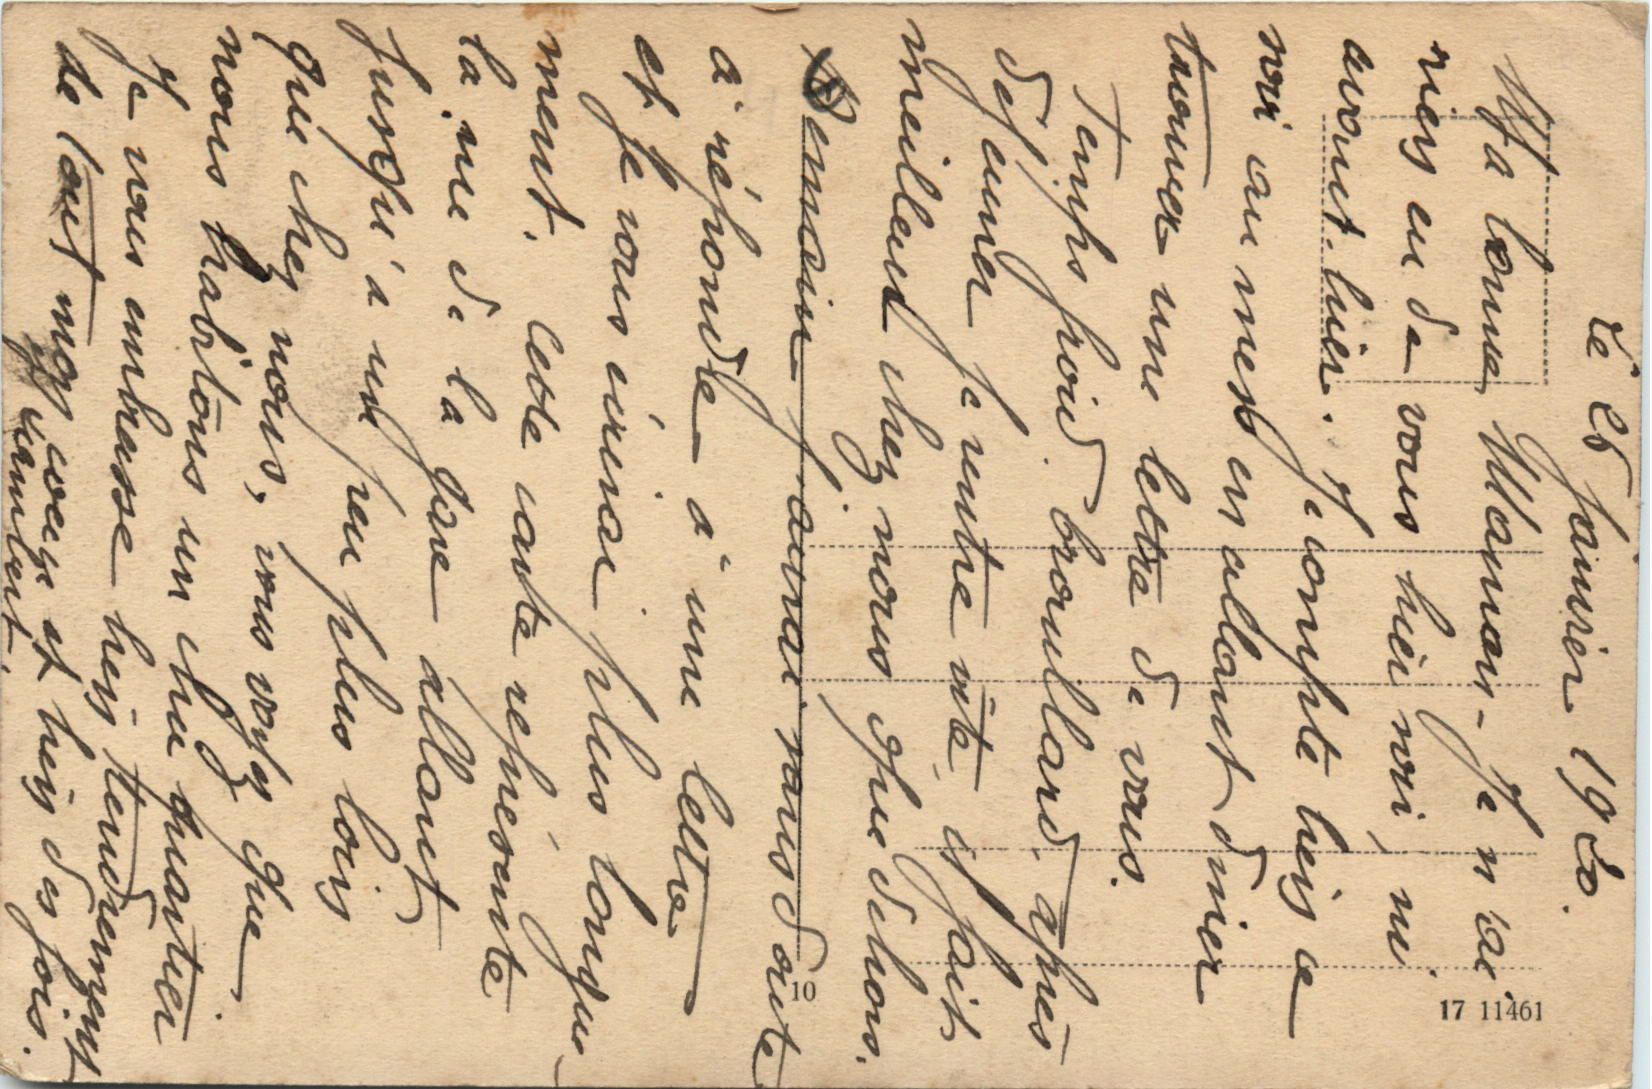 Le 25 janvier 1920.
Ma bonne Maman - Je n'ai
rien eu de vous hier ni, ni
avant-hier. Je compte bien ce
soir au mess en allant dîner
trouver une lettre de vous.
Temps froid. brouillard. après
déjeuner je rentre vite, il fait
meilleur chez nous que dehors.
Demain j'aurai sans doute
à répondre à une lettre
et je vous écrirai plus longue-
ment. Cette carte représente
la rue de la gare allant
jusqu'à un peu plus loin
que chez nous, vous voyez que
nous habitons un chic quartier
Je vous embrasse bien tendrement
de tout mon coeur et bien des fois.